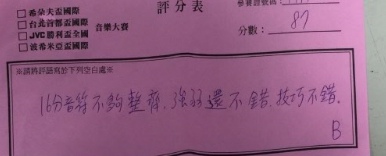 評分表
參賽證號碼：
□希朵夫盃國際
□台北首都盃國際
□JVC勝利盃全國
□波希米亞盃國際
音樂大賽
分數：87
※請將評語寫於下列空白處※
16分音符不夠整齊、強弱還不錯、技巧不錯、
B